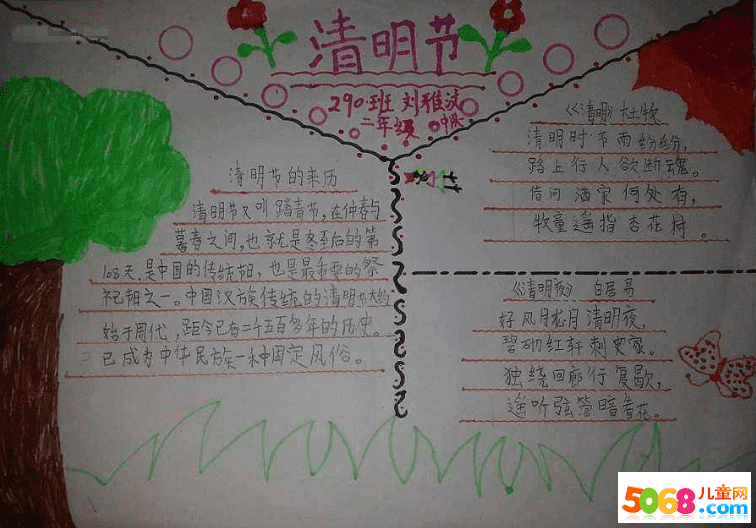 清明节
290班 刘雅淡
二年级 9队
清明节的来历
清明节又叫踏青节,在仲春与
暮春之间,也就是冬至后的第
108天,是中国的传统节日,也是最重要的祭
祀节日之一。中国汉族传统的清明节大约
始于周代,距今已有二千五百多年的历史。
已成为中华民族一种固定风俗。
《清明》 杜牧
清明时节雨纷纷,
路上行人欲断魂。
借问酒家何处有,
牧童遥指杏花村。
《清明夜》 白居易
好风胧月清明夜,
碧砌红轩刺史家。
独绕回廊行复歇,
遥听弦管暗看花。
5068儿童网
.com